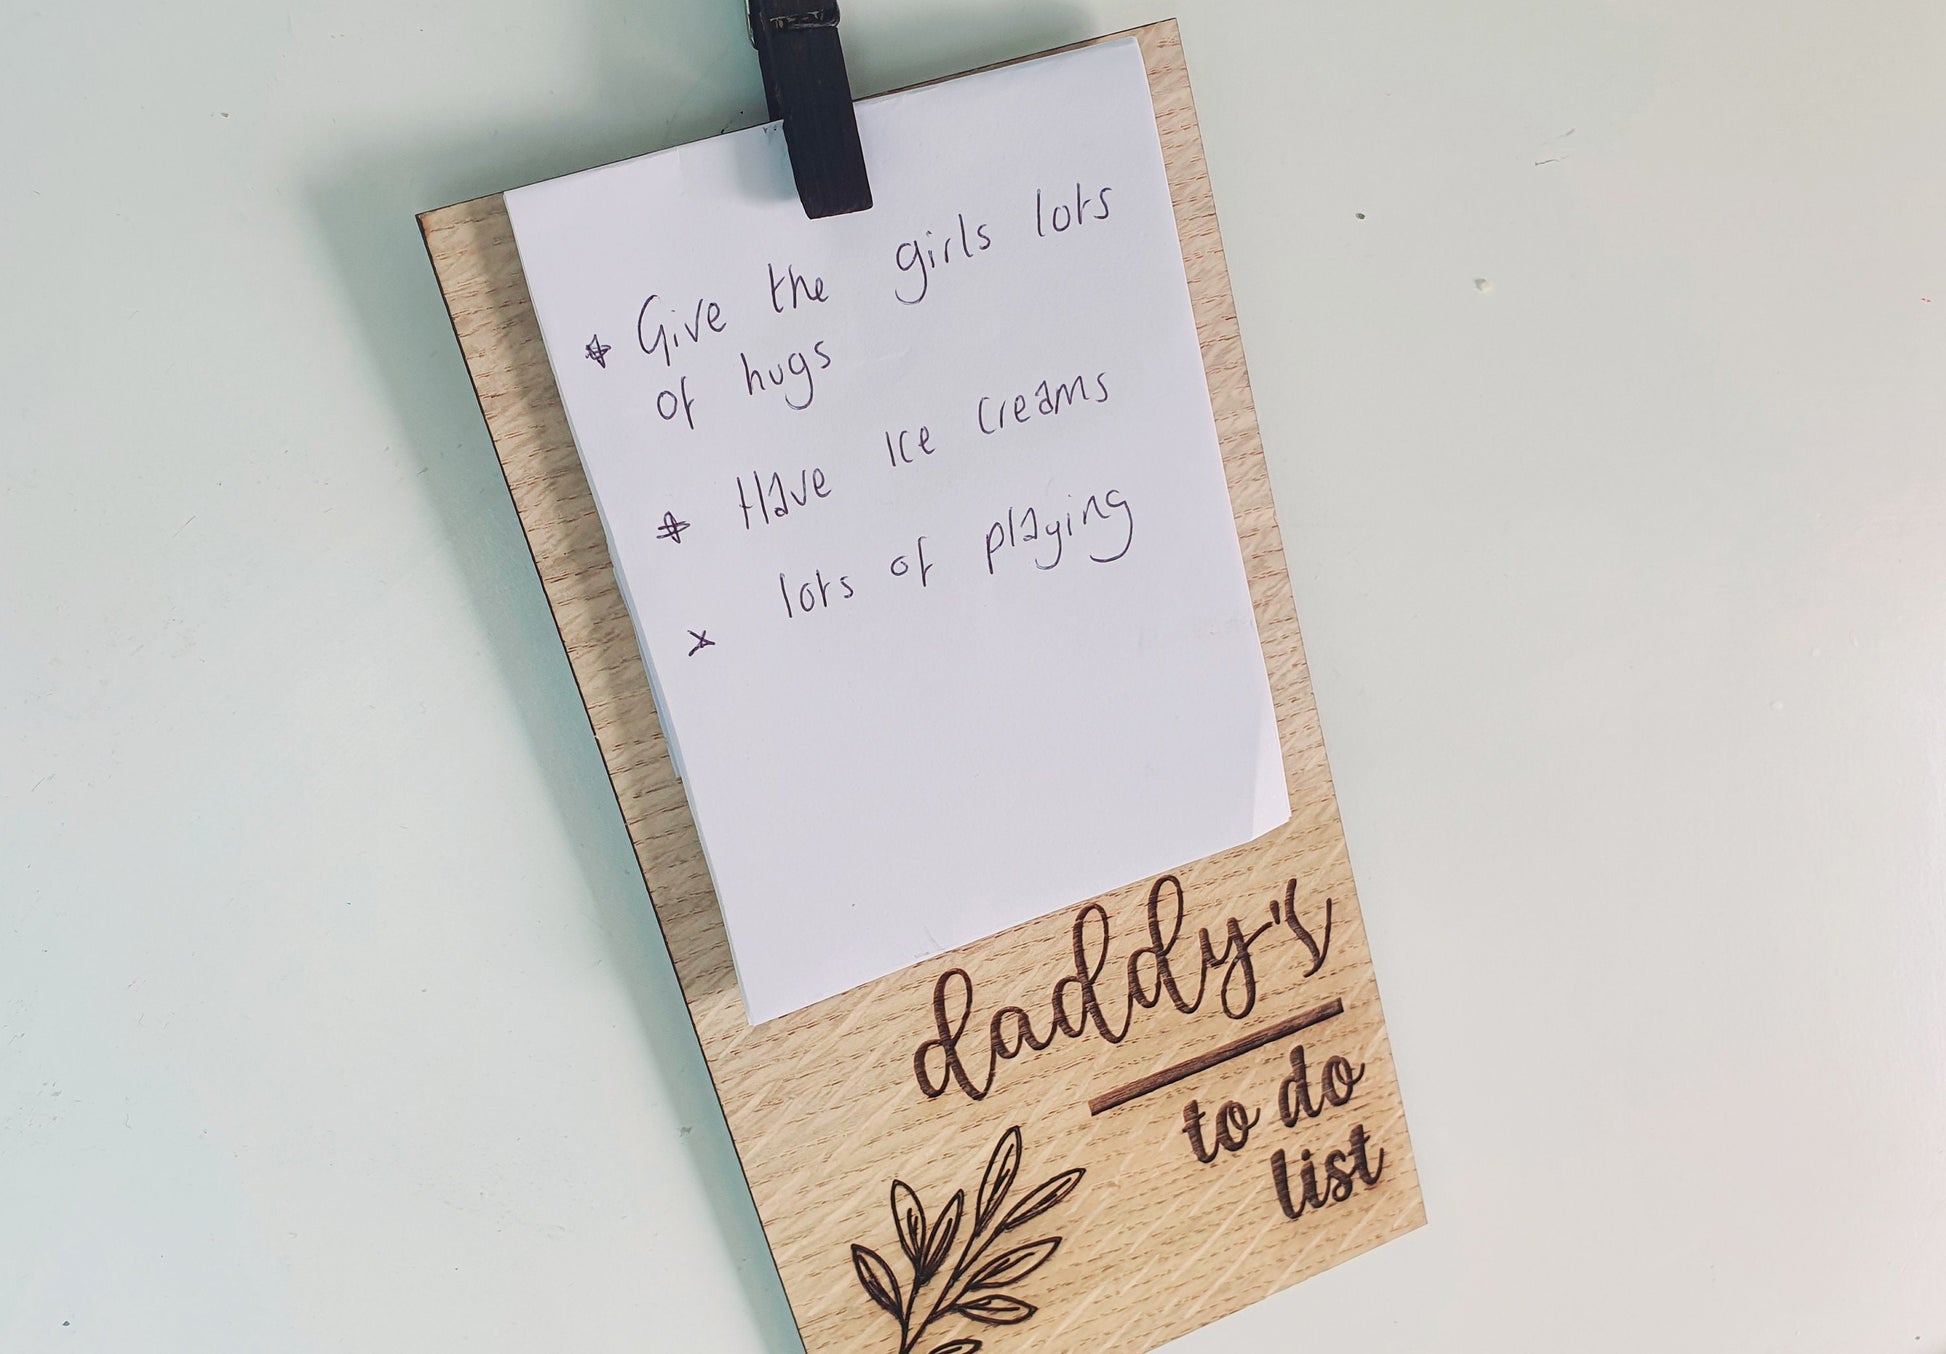 * Give the girls lots
of hugs
* Have Ice Creams
x lots of playing
daddy's
to do
list